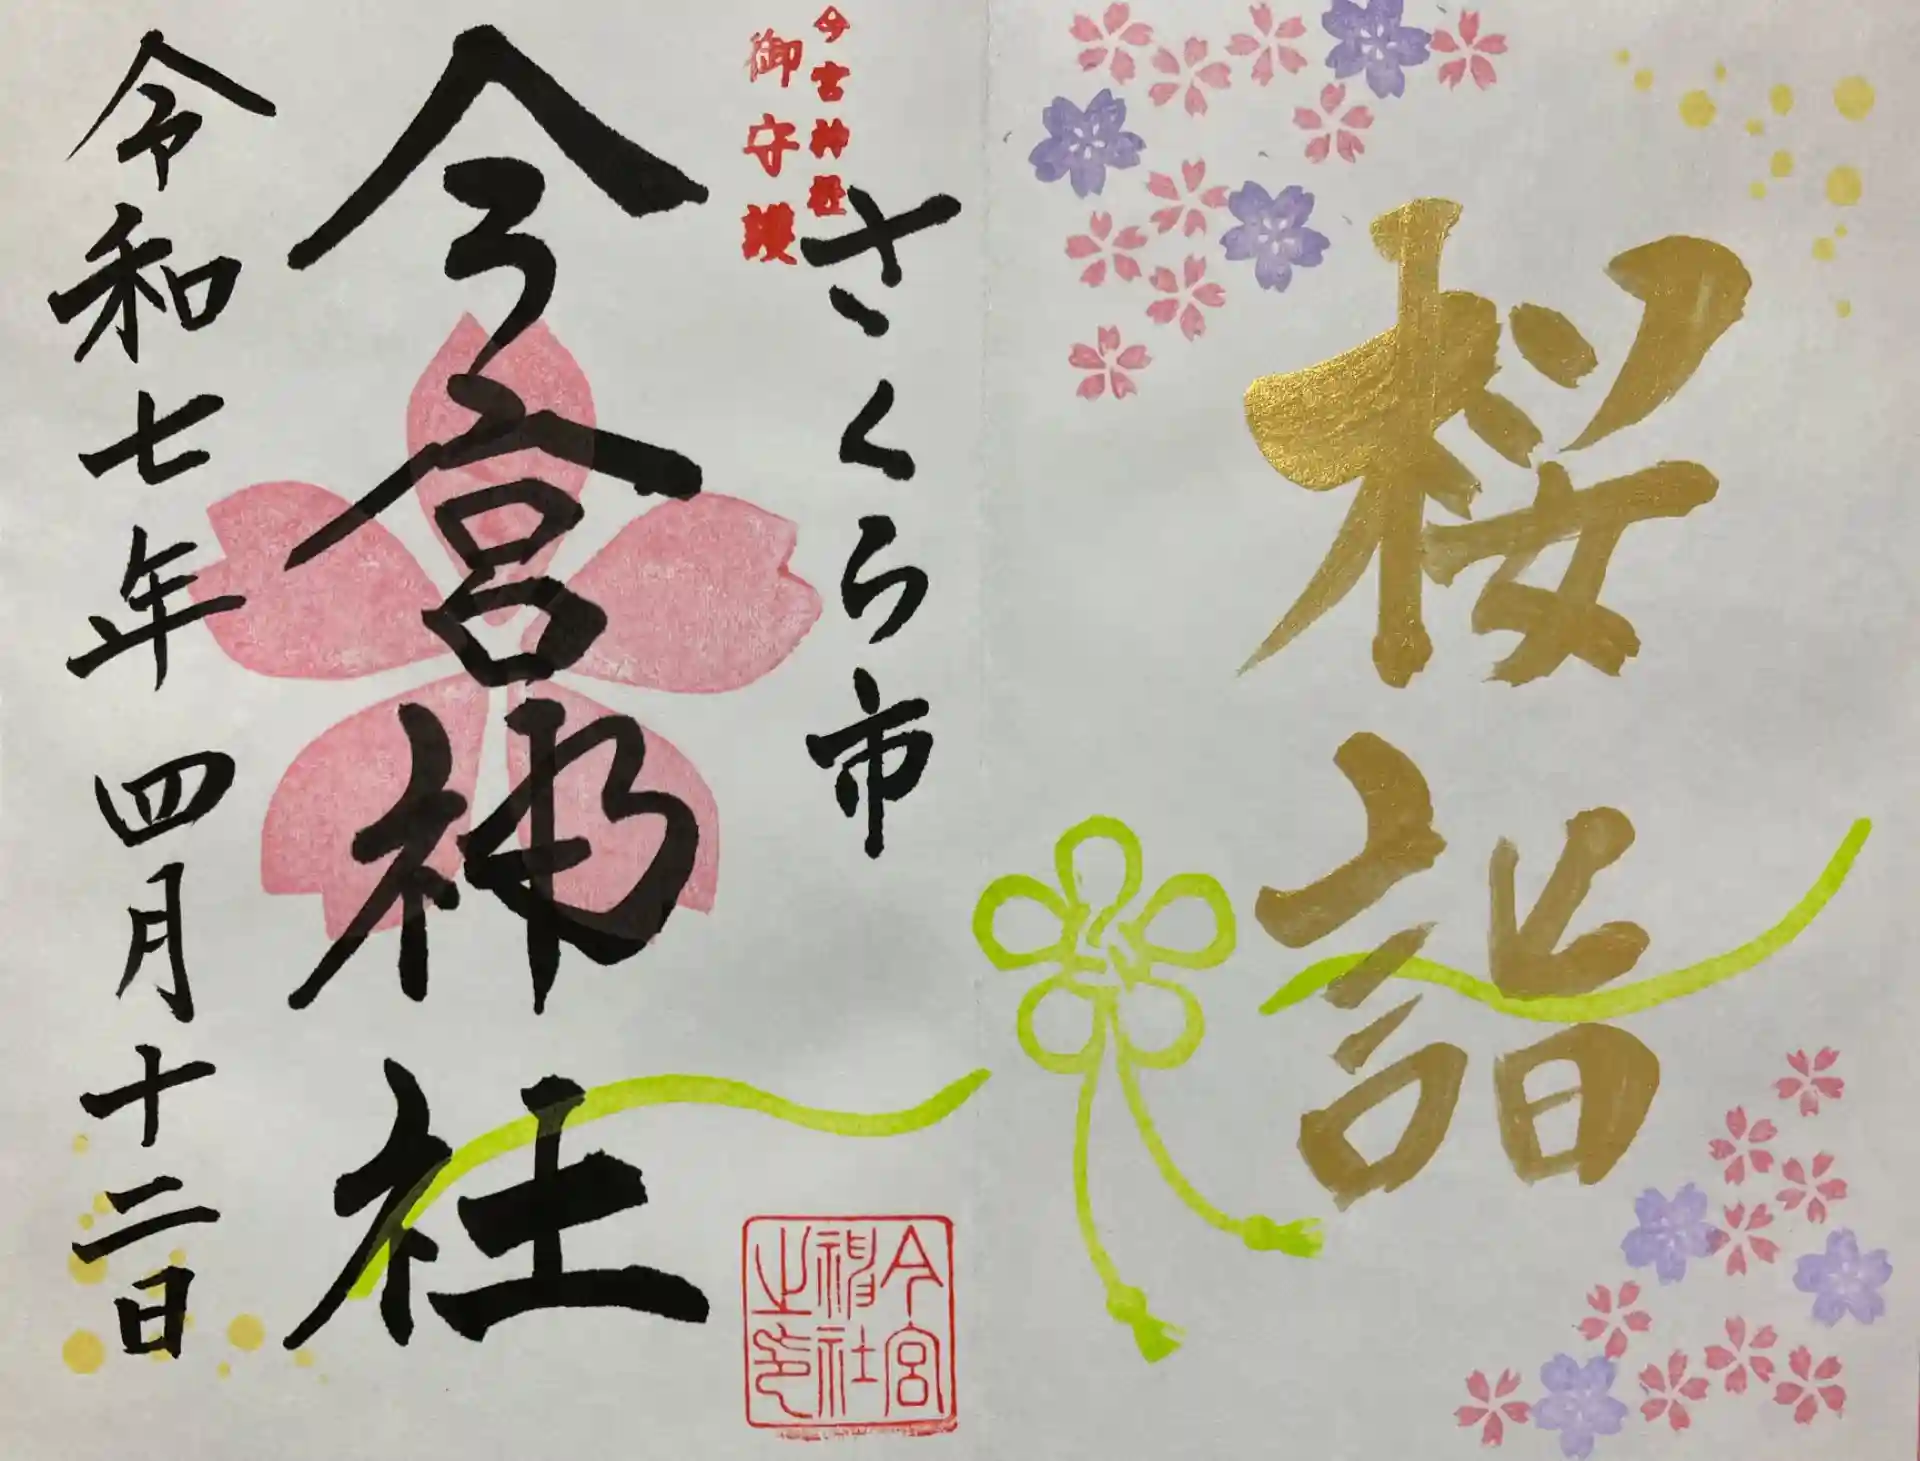 桜詣
さくら市
今宮神社
御守護
今宮神社
令和七年 四月十二日
今宮
神社
之印